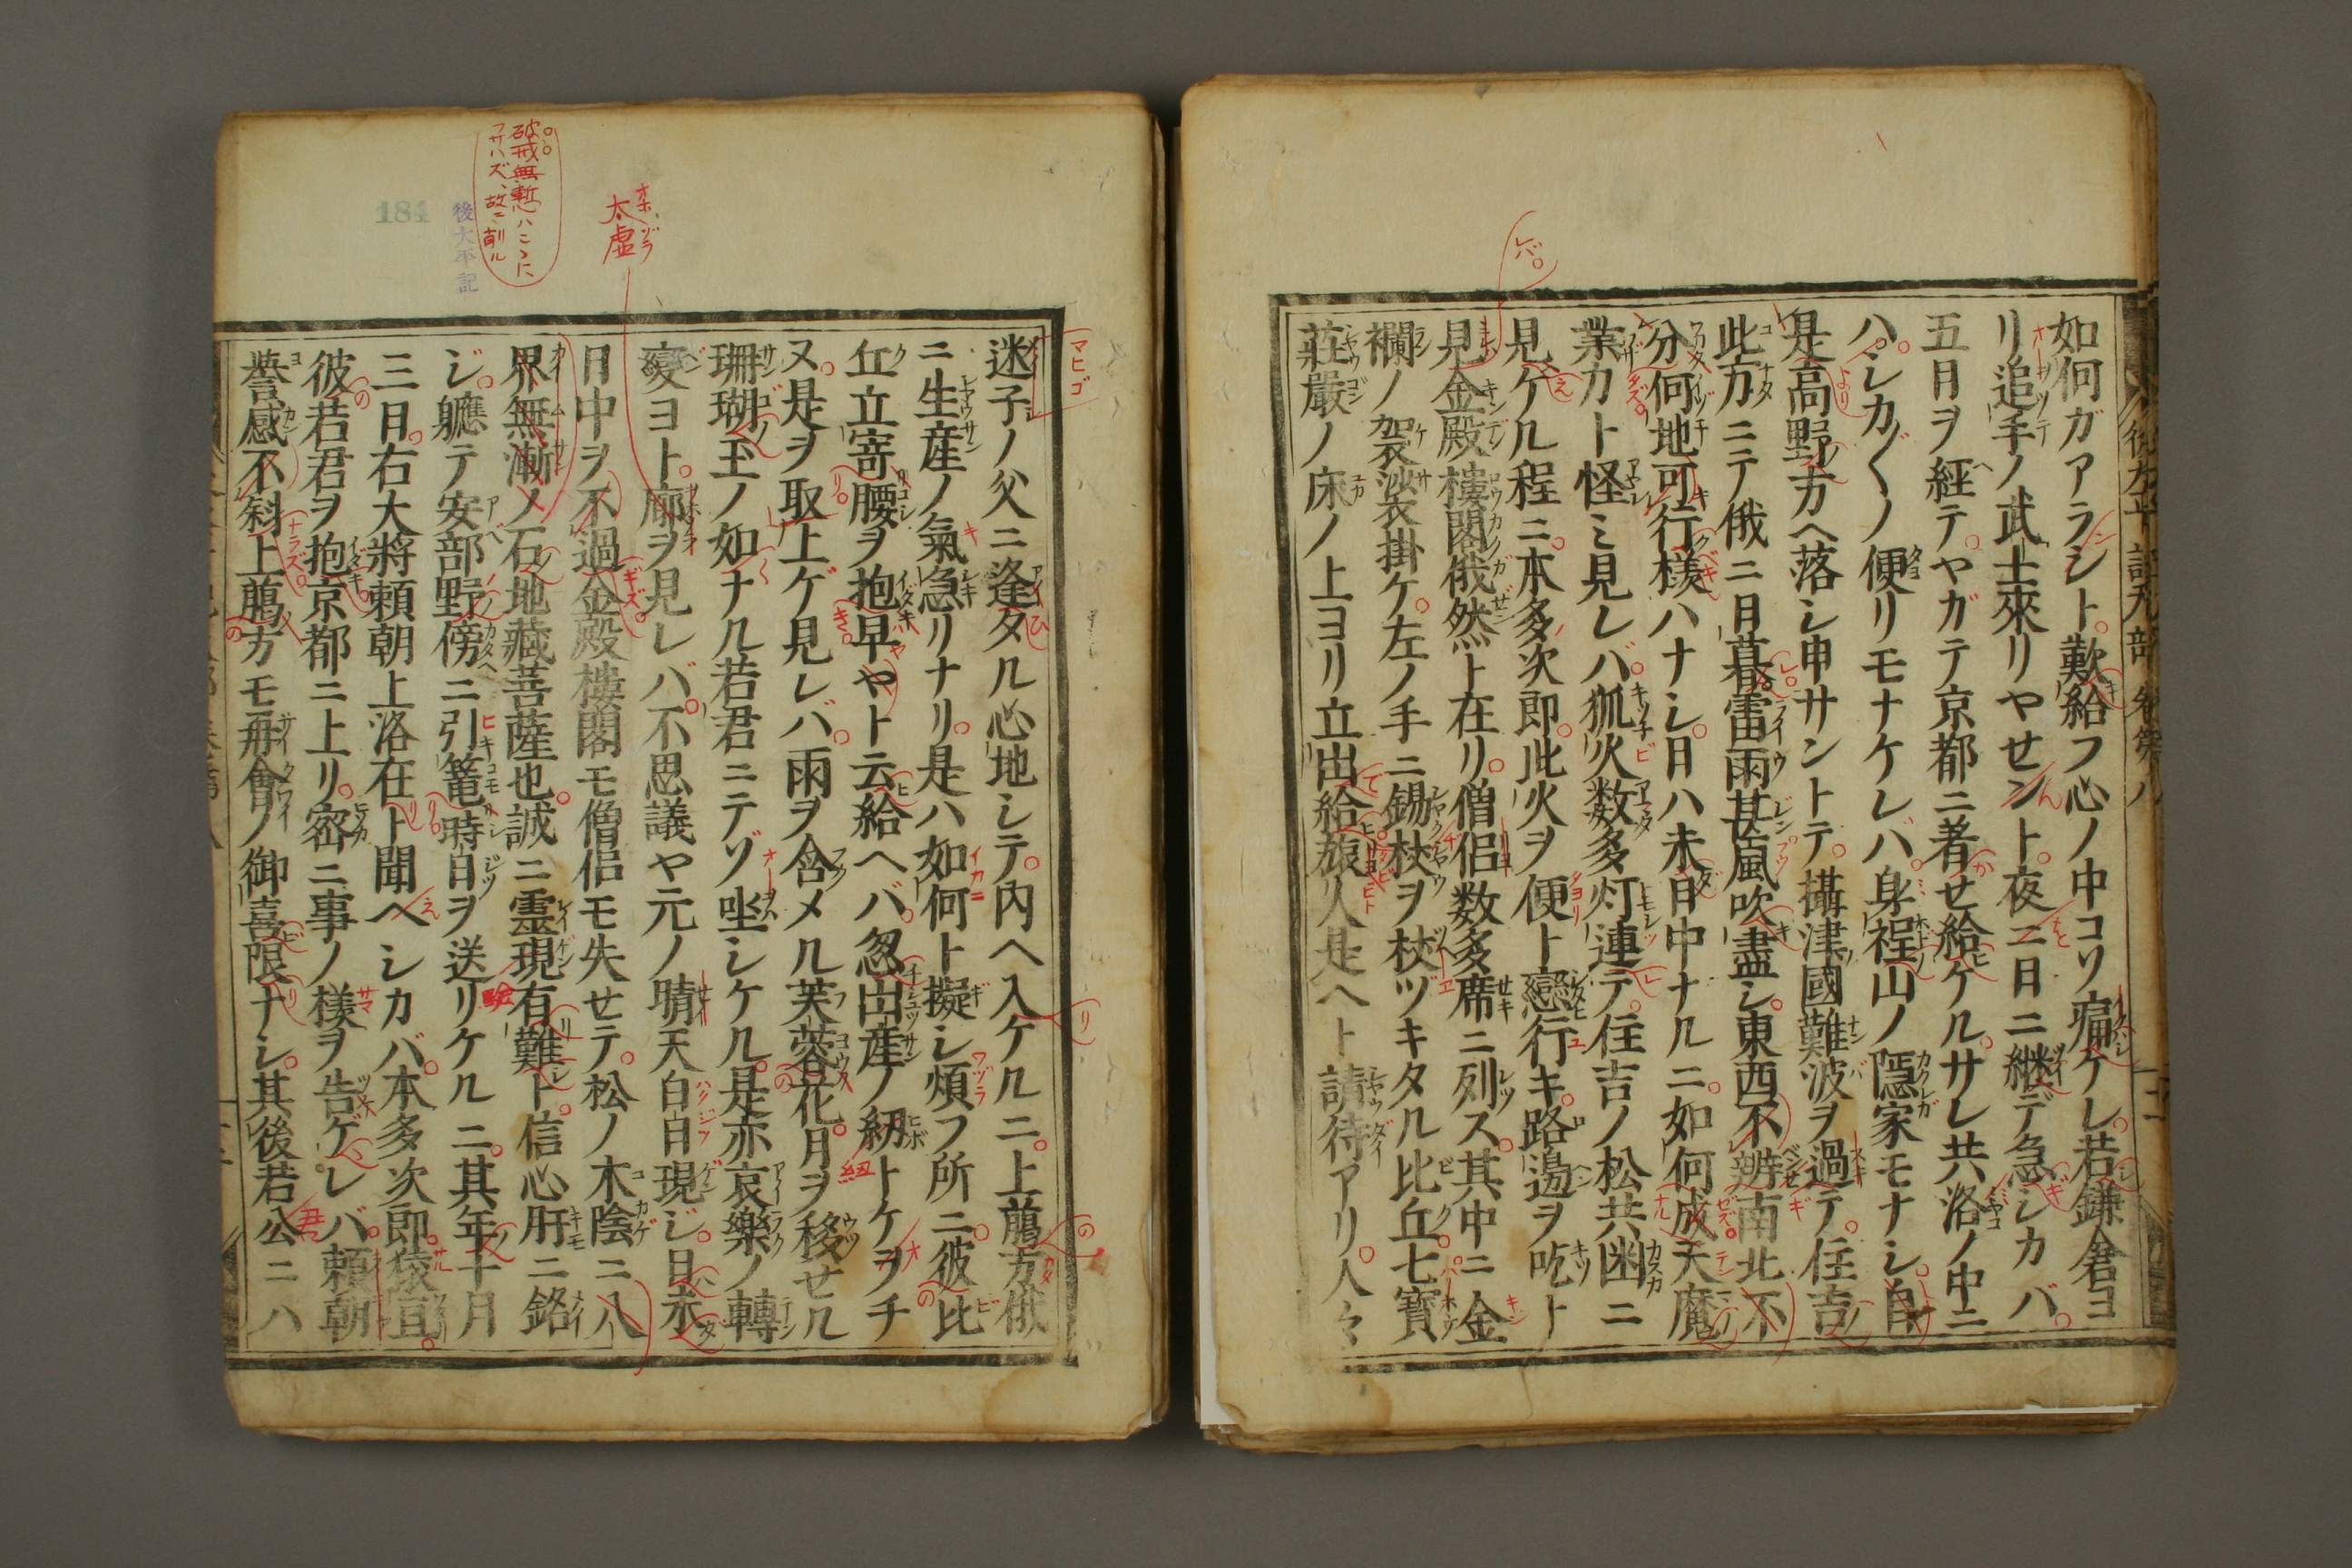 如何ガアラシト歎給フ心ノ中コソ痛ケレ若鎌倉ヨ
リ追手ノ武士來リヤセント夜ニ日ニ継デ急シカバ
五日ヲ經テヤガテ京都ニ著セ給ケルサレ共洛ノ中ニ
ハシカ〲ノ便リモナケレバ身程山ノ隱家モナシ自
是高野方ヘ落シ申サントテ攝津國難波ヲ過テ住吉
此方ニテ俄ニ日暮雷雨甚風吹盡シ東西不辨南北不
分何地可行様ハナシ日ハ未日中ナルニ如何成天魔
業カト怪ミ見レバ狐火数多灯連テ住吉ノ松共幽ニ
見ケル程ニ本多次郎此火ヲ便ト戀行キ路邉ヲ吃ト
見金殿樓閣俄然ト在リ僧侶数多席ニ列ス其中ニ金
襴ノ袈裟掛ケ左ノ手ニ錫杖ヲ杖ヅキタル比丘七寶
莊嚴ノ床ノ上ヨリ立出給旅人是ヘト請待アリ人々
迷子ノ父ニ逢タル心地シテ内ヘ入ケルニ上﨟方俄
ニ生産ノ氣急リナリ是ハ如何ト擬シ煩フ所ニ彼比
丘立寄腰ヲ抱早ヤト云給ヘバ忽出産ノ紐トケヲチ
ヌ是ヲ取上ゲ見レバ雨ヲ含メル芙蓉花月ヲ移セル
珊瑚玉ノ如ナル若君ニテゾ坐シケル是亦哀樂ノ轉
變ヨト廓ヲ見レバ不思議ヤ元ノ晴天白日現ジ日未
日中ヲ不過金殿樓閣モ僧侶モ失セテ松ノ木陰ニ八
界無漸ノ石地藏菩薩也誠ニ霊現有難ト信心肝ニ銘
ジ軈テ安部野傍ニ引篭時日ヲ送リケルニ其年十月
三日右大將頼朝上洛在ト聞ヘシカバ本多次郎猿亘
彼若君ヲ抱京都ニ上リ密ニ事ノ様ヲ告ゲレバ頼朝
譽感不斜上﨟方モ再會ノ御喜限ナシ其後若公ニハ
マヒゴ
太虚
破戒無慙ハこゝに
フサハズ、故ニ削ル
後太平記
184
レバ。